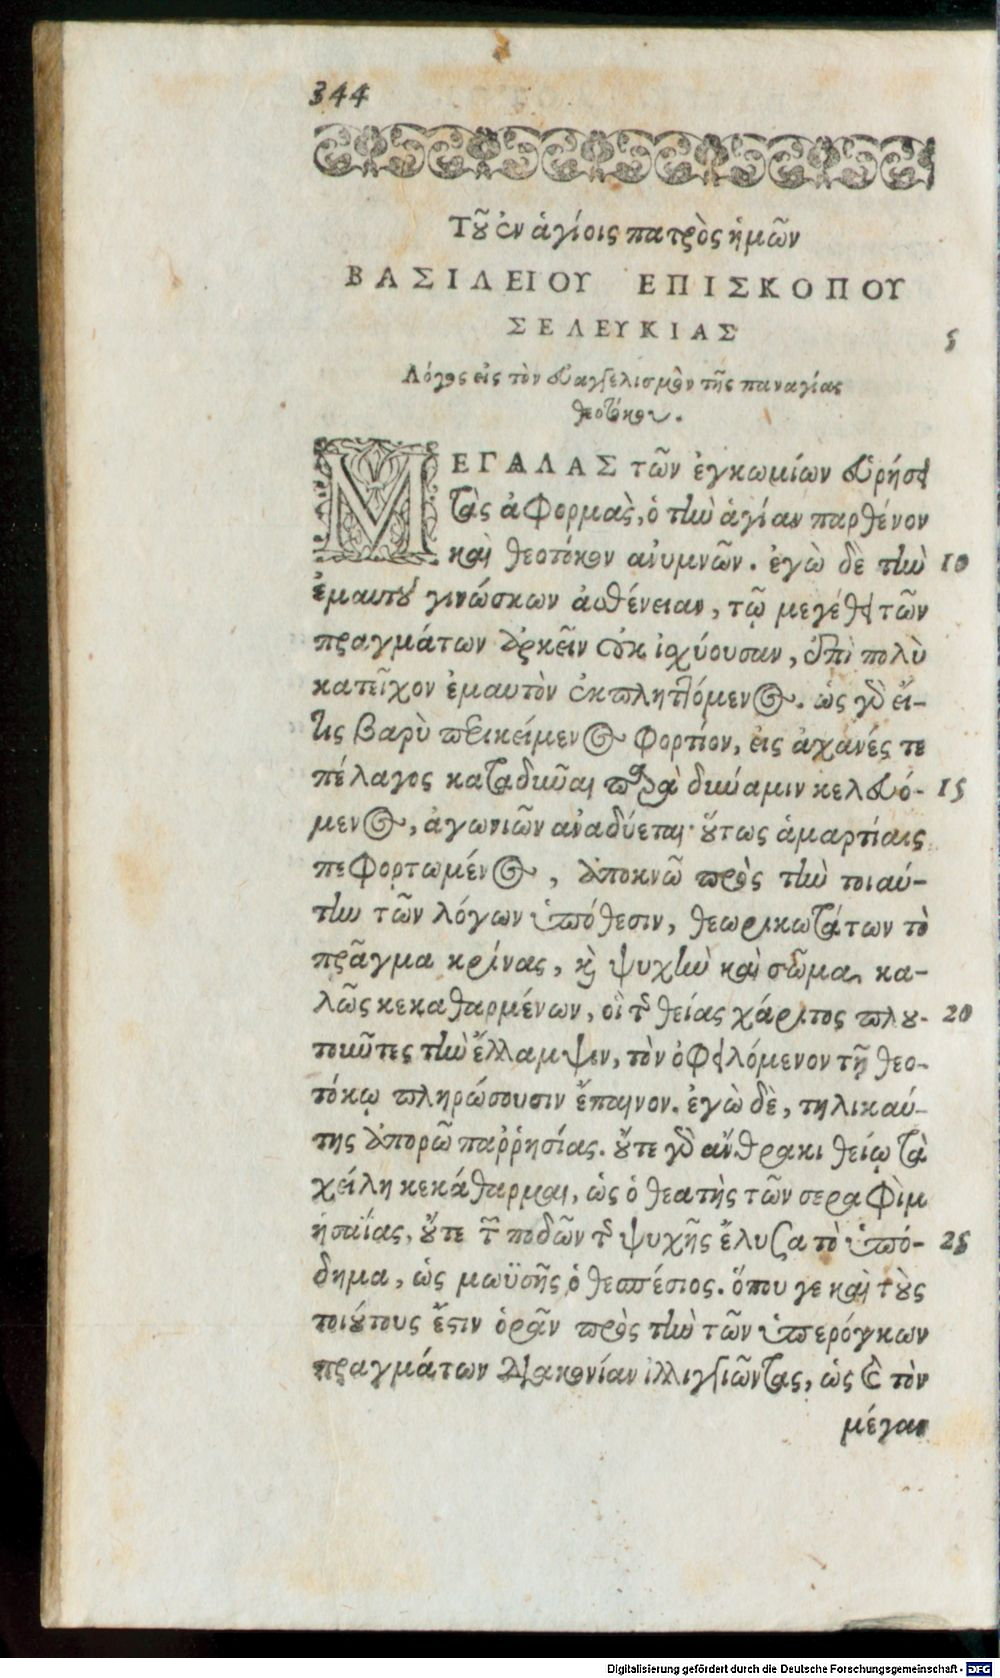 344
Τοῦ ἐν ἁγίοις πατρὸς ἡμῶν
ΒΑΣΙΛΕΙΟΥ ΕΠΙΣΚΟΠΟΥ
ΣΕΛΕΥΚΙΑΣ
5
Λόγος εἰς τὸν εὐαγγελισμὸν τῆς παναγίας
θεοτόκου.
ΜΕΓΑΛΑΣ τῶν ἐγκωμίων εὑρήσει
τὰς ἀφορμὰς, ὁ τὴν ἁγίαν παρθένον
καὶ θεοτόκον ἀνυμνῶν. ἐγὼ δὲ τὴν 10
ἐμαυτοῦ γινώσκων ἀσθένειαν, τῷ μεγέθει τῶν
πραγμάτων ἀρκεῖν οὐκ ἰσχύουσαν, ἐπὶ πολὺ
κατεῖχον ἐμαυτὸν ἐκπληττόμενος. ὡς γὰρ εἴ-
τις βαρὺ περικείμενος φορτίον, εἰς ἀχανές τε
πέλαγος καταδῦναι παρὰ δύναμιν κελευό- 15
μενος, ἀγωνιῶν ἀναδύεται· οὕτως ἁμαρτίαις
πεφορτωμένος, ἀποκνῶ πρὸς τὴν τοιαύ-
την τῶν λόγων ὑπόθεσιν, θεωρικωτάτων τὸ
πρᾶγμα κρίνας, καὶ ψυχὴν καὶ σῶμα κα-
λῶς κεκαθαρμένων, οἳ τῆς θείας χάριτος πλου- 20
τοῦντες τὴν ἔλλαμψιν, τὸν ὀφειλόμενον τῇ θεο-
τόκῳ πληρώσουσιν ἔπαινον. ἐγὼ δὲ, τηλικαύ-
της ἀπορῶ παῤῥησίας. οὔτε γὰρ ἄνθρακι θείῳ τὰ
χείλη κεκάθαρμαι, ὡς ὁ θεατὴς τῶν σεραφὶμ
ἡσαΐας, οὔτε τῶν ποδῶν τῆς ψυχῆς ἔλυσα τὸ ὑπό- 25
δημα, ὡς μωϋσῆς ὁ θεσπέσιος. ὅπου γε καὶ τοὺς
τοιούτους ἔστιν ὁρᾶν πρὸς τὴν τῶν ὑπερόγκων
πραγμάτων διακονίαν ἰλλιγγιῶντας, ὡς καὶ τὸν
μέγαν
Digitalisierung gefördert durch die Deutsche Forschungsgemeinschaft - DFG